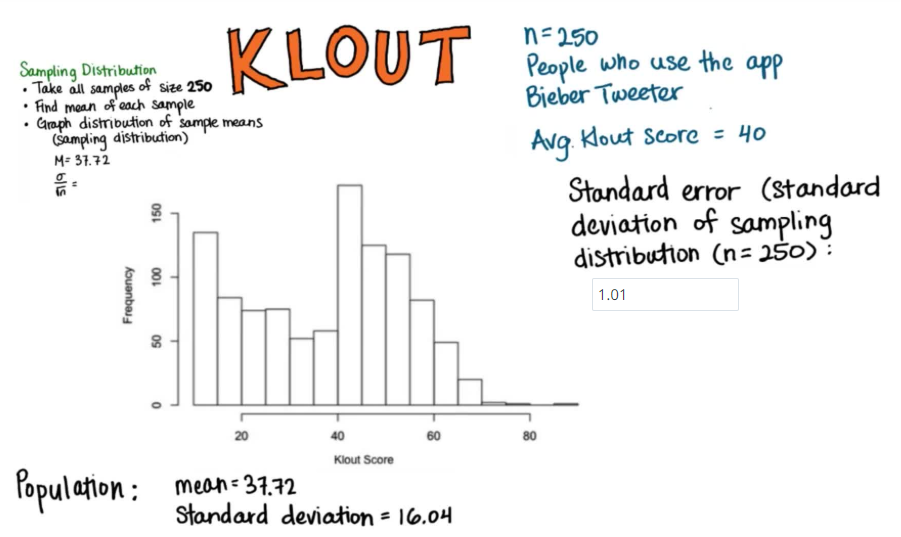 KLOUT
Sampling Distribution
• Take all samples of size 250
• Find mean of each sample
• Graph distribution of sample means
(sampling distribution)
M= 37.72
σ/√n =
n=250
People who use the app
Bieber Tweeter
Avg. Klout score = 40
Standard error (standard
deviation of sampling
distribution (n=250):
1.01
Frequency
150
100
50
0
20 40 60 80
Klout Score
Population: mean=37.72
Standard deviation = 16.04